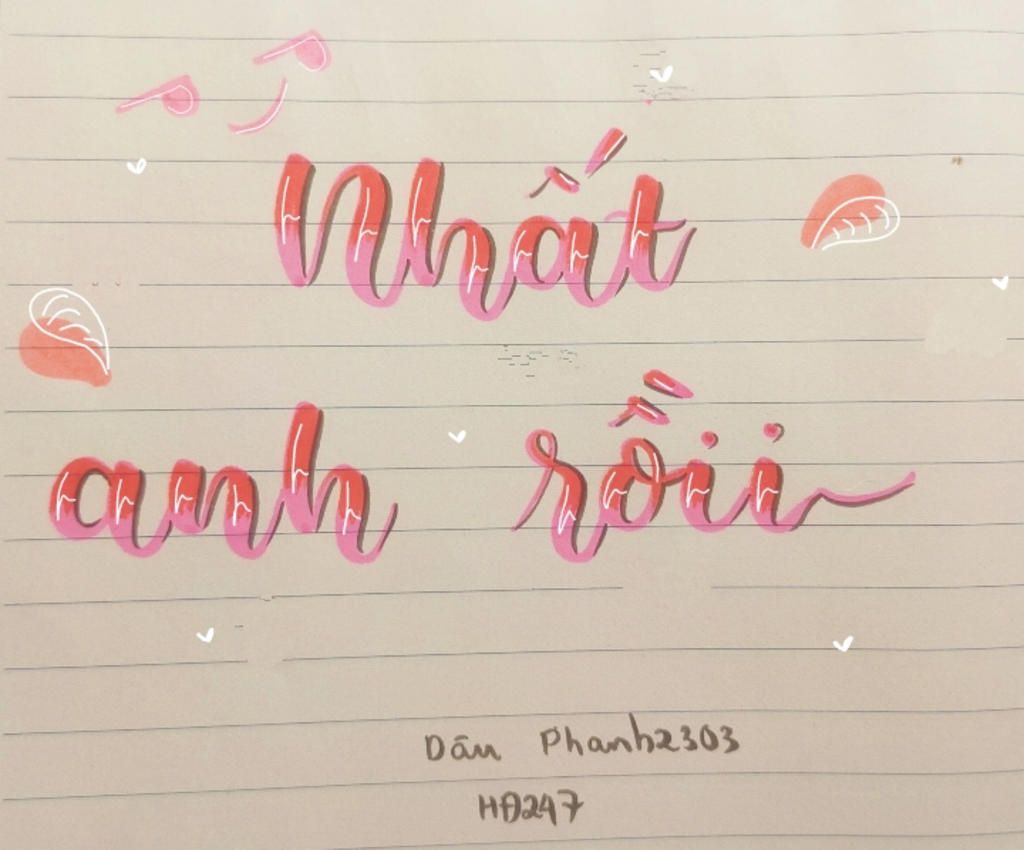 Nhất
anh rồii
Dân Phanh2303
HĐ247